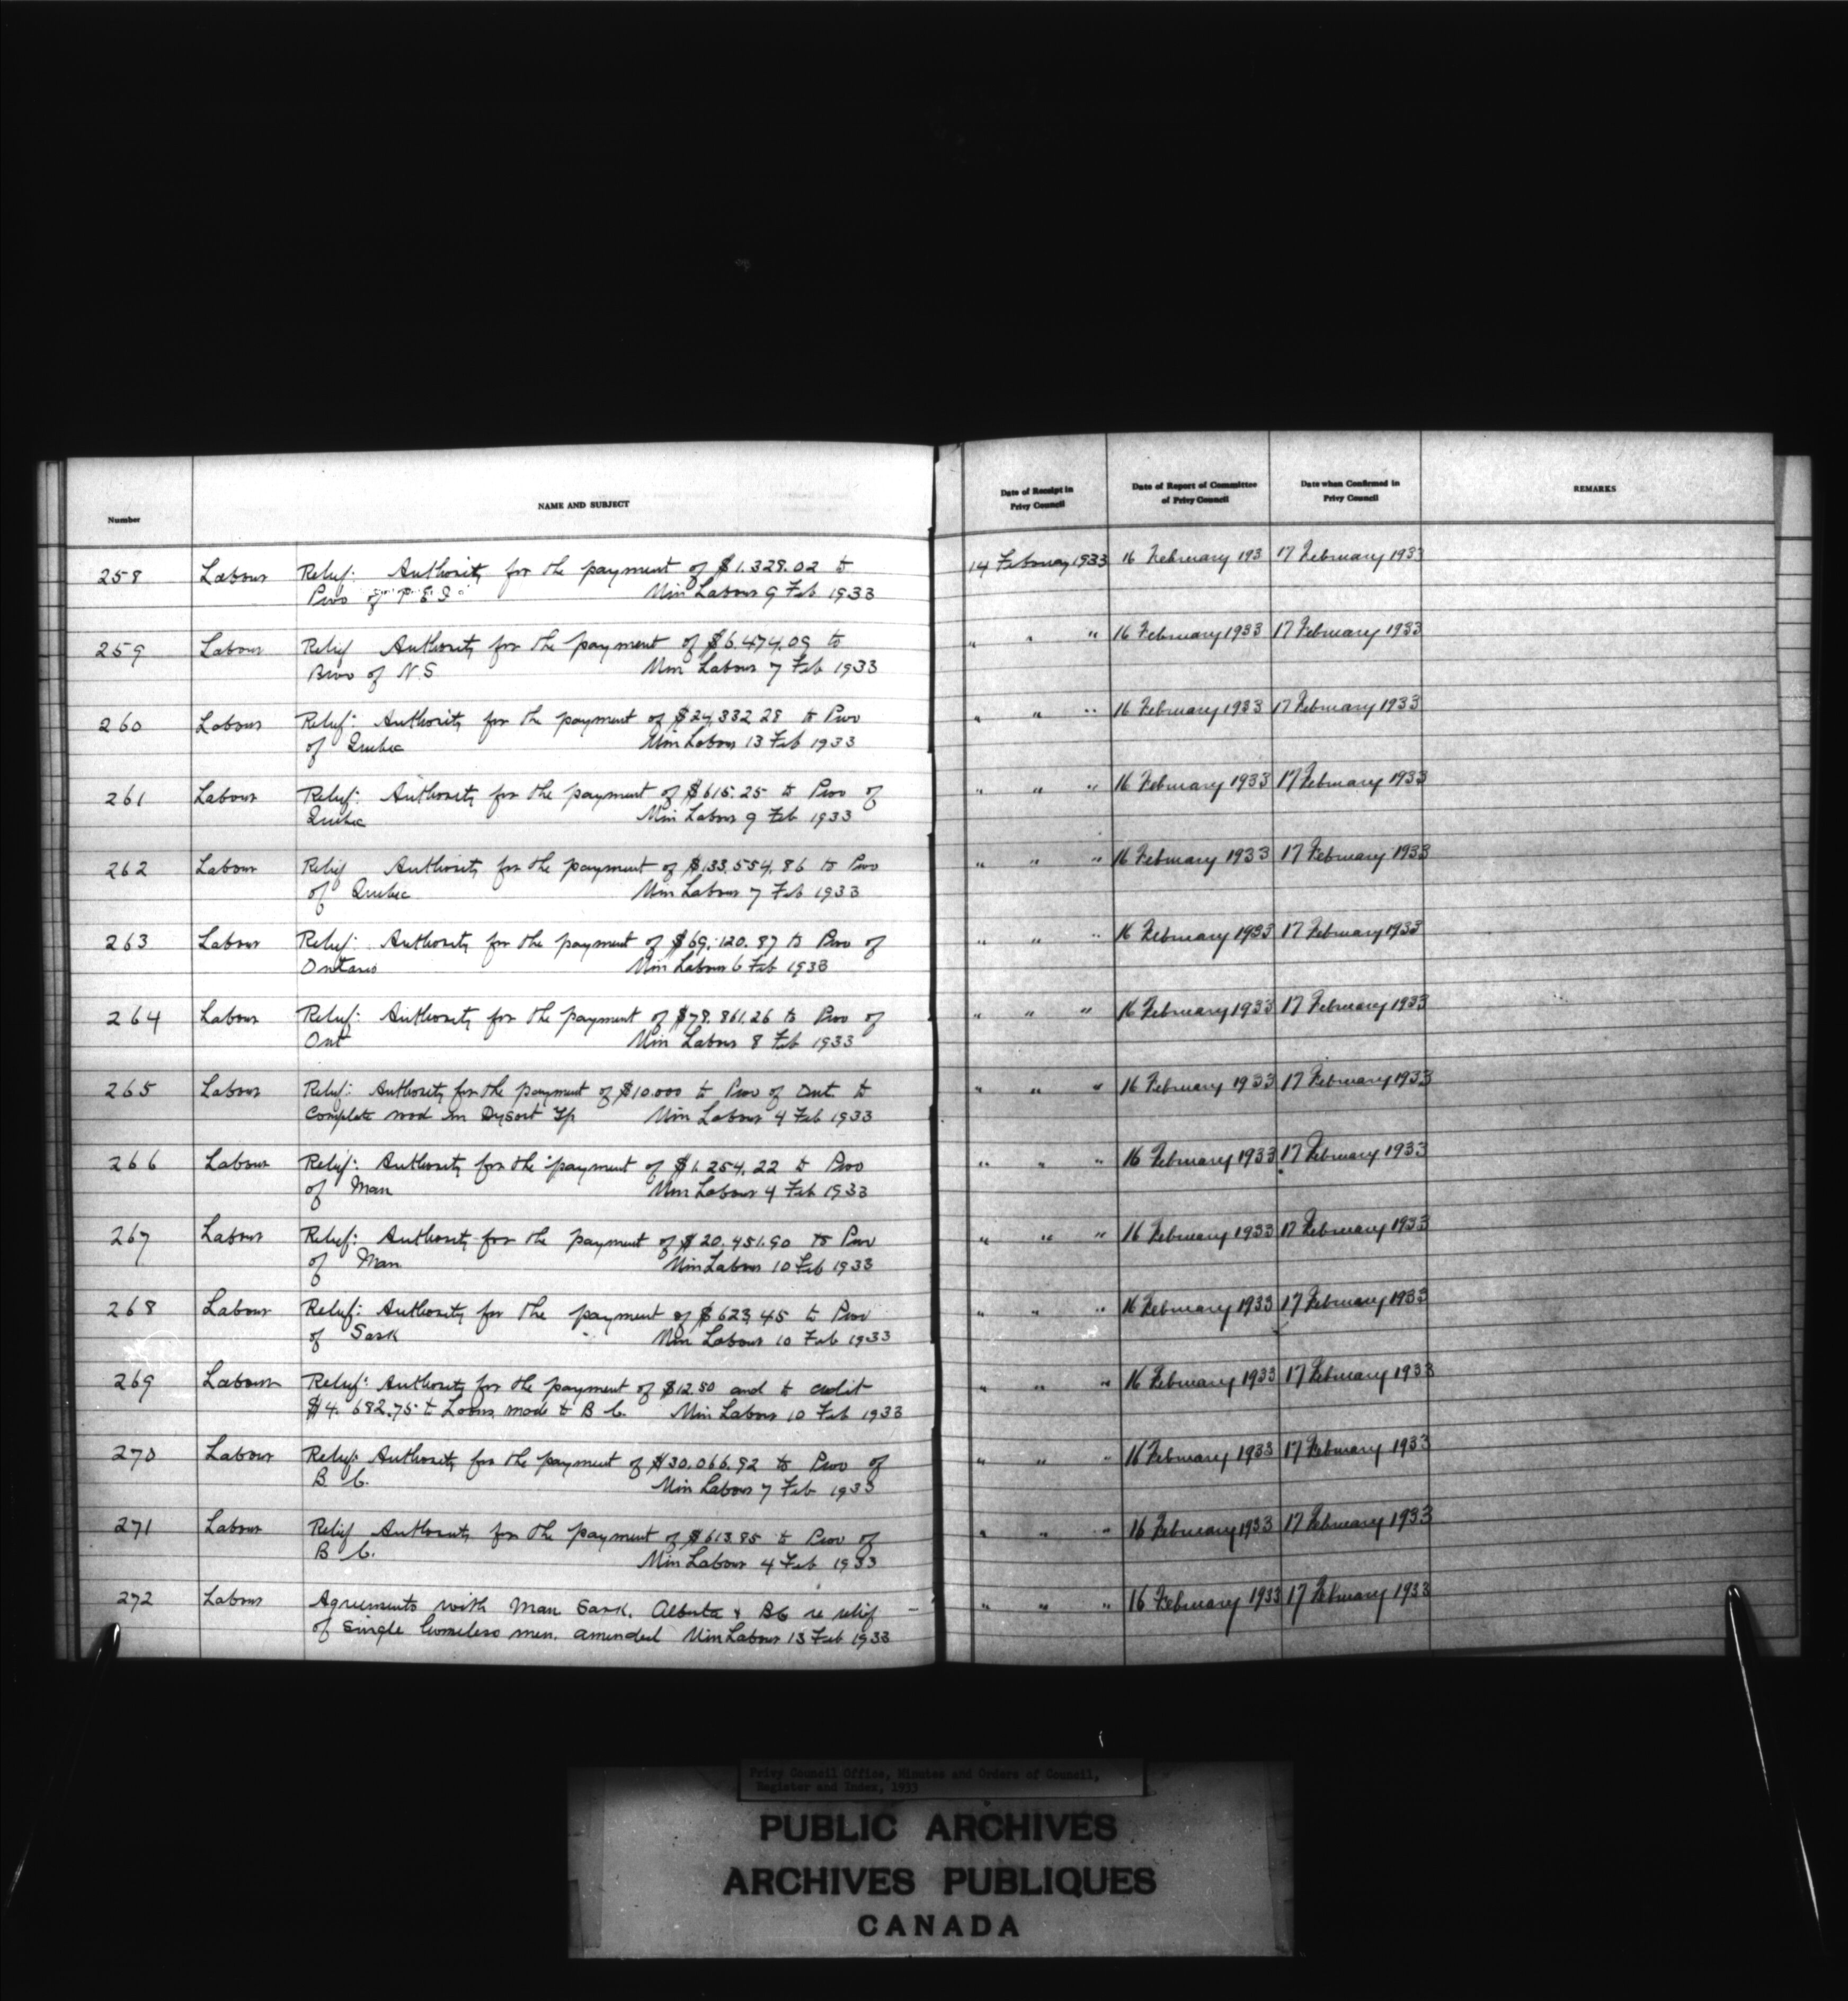 Number
NAME AND SUBJECT
Date of Receipt in
Privy Council
Date of Report of Committee
of Privy Council
Date when Confirmed in
Privy Council
REMARKS
258 Labour Relief: Authority for the payment of $1.328.02 to 14 February 1933 16 February 193 17 February 1933
Prov of P E I Min Labour 9 Feb 1933
259 Labour Relief Authority for the payment of $6.474.09 to " " " 16 February 1933 17 February 1933
Prov of N.S Min Labour 7 Feb 1933
260 Labour Relief: Authority for the payment of $24,332 28 to Prov " " " 16 February 1933 17 February 1933
of Quebec Min Labour 13 Feb 1933
261 Labour Relief: Authority for the payment of $615.25 to Prov of " " " 16 February 1933 17 February 1933
Quebec Min Labour 9 Feb 1933
262 Labour Relief Authority for the payment of $133.554.86 to Prov " " " 16 February 1933 17 February 1933
of Quebec Min Labour 7 Feb 1933
263 Labour Relief: Authority for the payment of $69,120.87 to Prov of " " " 16 February 1933 17 February 1933
Ontario Min Labour 6 Feb 1933
264 Labour Relief: Authority for the payment of $78.861.26 to Prov of " " " 16 February 1933 17 February 1933
Ont Min Labour 8 Feb 1933
265 Labour Relief: Authority for the payment of $10.000 to Prov of Ont. to " " " 16 February 1933 17 February 1933
Complete road in Dysart Tp Min Labour 4 Feb 1933
266 Labour Relief: Authority for the payment of $1.254.22 to Prov " " " 16 February 1933 17 February 1933
of Man Min Labour 4 Feb 1933
267 Labour Relief: Authority for the payment of $20.451.90 to Prov " " " 16 February 1933 17 February 1933
of Man Min Labour 10 Feb 1933
268 Labour Relief: Authority for the payment of $623,45 to Prov " " " 16 February 1933 17 February 1933
of Sask Min Labour 10 Feb 1933
269 Labour Relief: Authority for the payment of $12.50 and to credit " " " 16 February 1933 17 February 1933
$4. 682.75 to Loans made to B C. Min Labour 10 Feb 1933
270 Labour Relief: Authority for the payment of $30.066.92 to Prov of " " " 16 February 1933 17 February 1933
B C. Min Labour 7 Feb 1933
271 Labour Relief Authority for the payment of $613.85 to Prov of " " " 16 February 1933 17 February 1933
B C. Min Labour 4 Feb 1933
272 Labour Agreements with Man Sask. Alberta & BC re relief – " " " 16 February 1933 17 February 1933
of single homeless men. amended Min Labour 13 Feb 1933
Privy Council Office, Minutes and Orders of Council,
Register and Index, 1933
PUBLIC ARCHIVES
ARCHIVES PUBLIQUES
CANADA